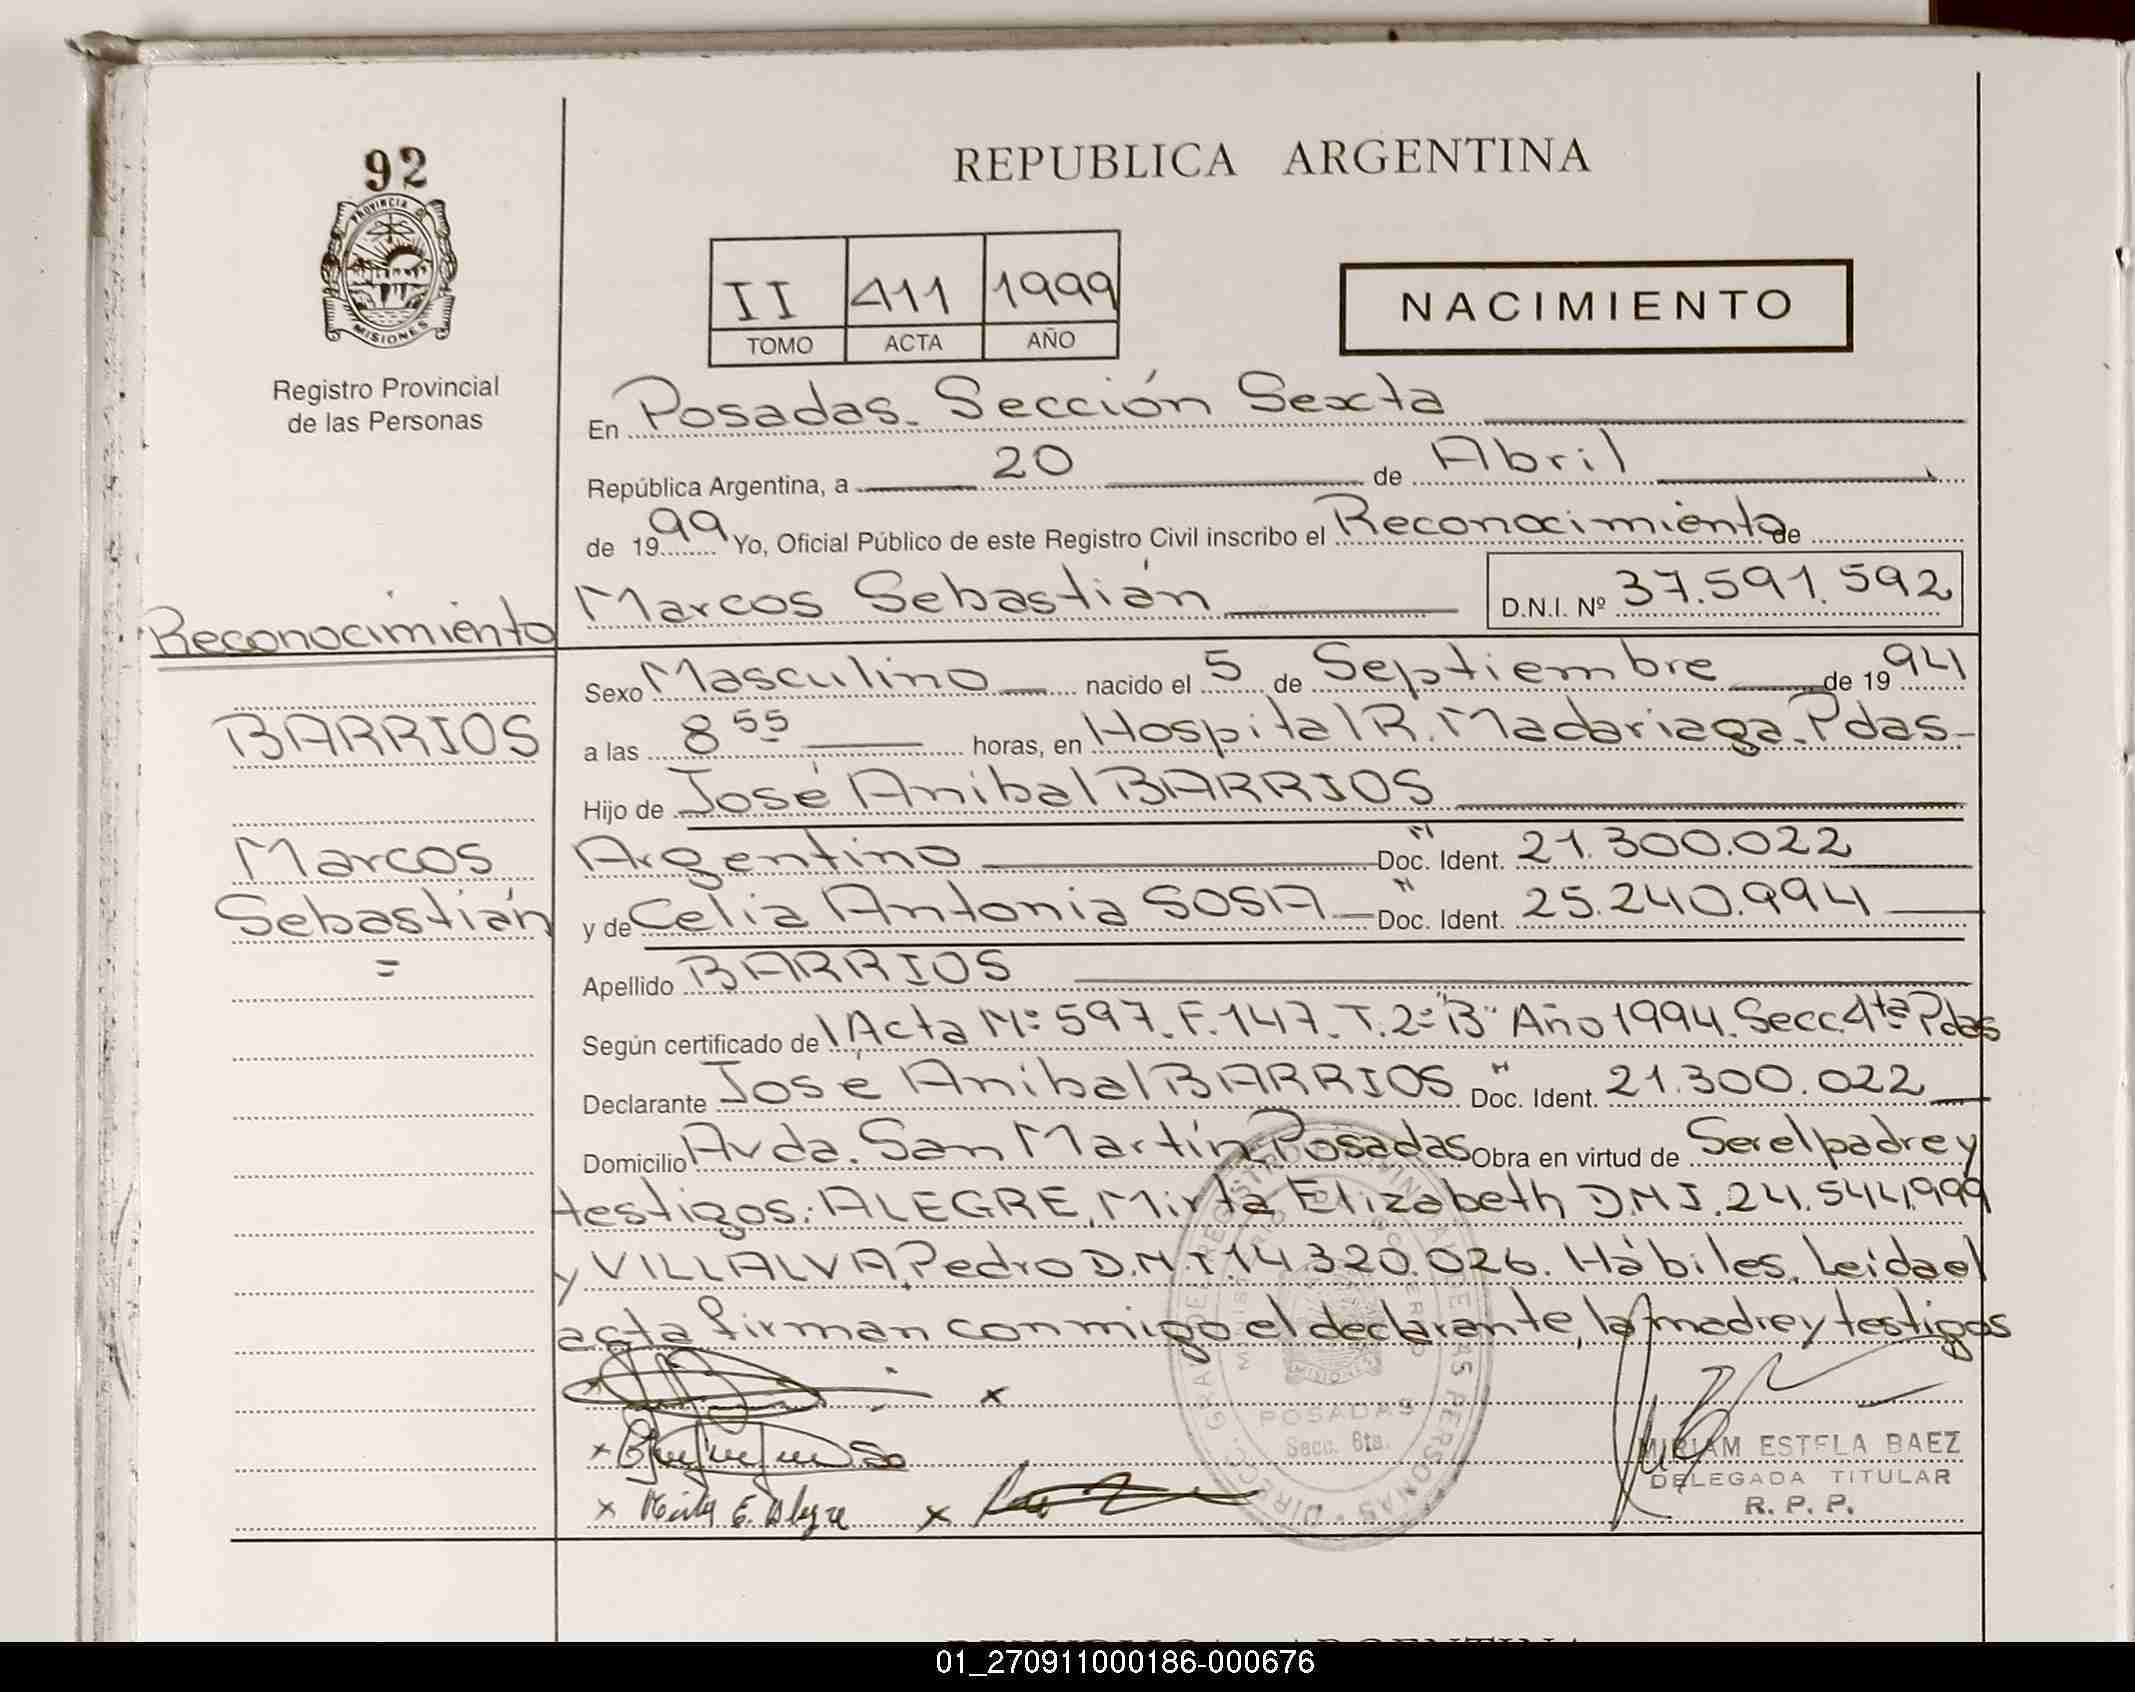 92
PROVINCIA DE
MISIONES
Registro Provincial
de las Personas
REPUBLICA ARGENTINA
II 411 1999
TOMO ACTA AÑO
NACIMIENTO
En Posadas. Sección Sexta
República Argentina, a 20 de Abril
de 1999 Yo, Oficial Público de este Registro Civil inscribo el Reconocimiento de
Marcos Sebastián D.N.I. Nº 37.591.592
Reconocimiento
BARRIOS
Marcos
Sebastián
=
Sexo Masculino nacido el 5 de Septiembre de 1994
a las 8 55 horas, en Hospital R. Madariaga. Pdas-
Hijo de José Anibal BARRIOS
Argentino Doc. Ident. 21.300.022
y de Celia Antonia SOSA Doc. Ident. 25.240.994
Apellido BARRIOS
Según certificado de Acta Nº 597. F. 147. T. 2º "B" Año 1994. Secc. 4ta Pdas
Declarante José Anibal BARRIOS Doc. Ident. 21.300.022
Domicilio Avda. San Martín. Posadas Obra en virtud de Ser el padre y
testigos: ALEGRE, Mirta Elizabeth D.N.I. 24.544.999
y VILLALVA, Pedro D.N.I. 14.320.026. Hábiles. Leida el
acta firman conmigo el declarante, la madre y testigos
x
x
x Mirta E. Alegre x
POSADAS
Secc. 6ta.
MIRIAM ESTELA BAEZ
DELEGADA TITULAR
R. P. P.
01_270911000186-000676